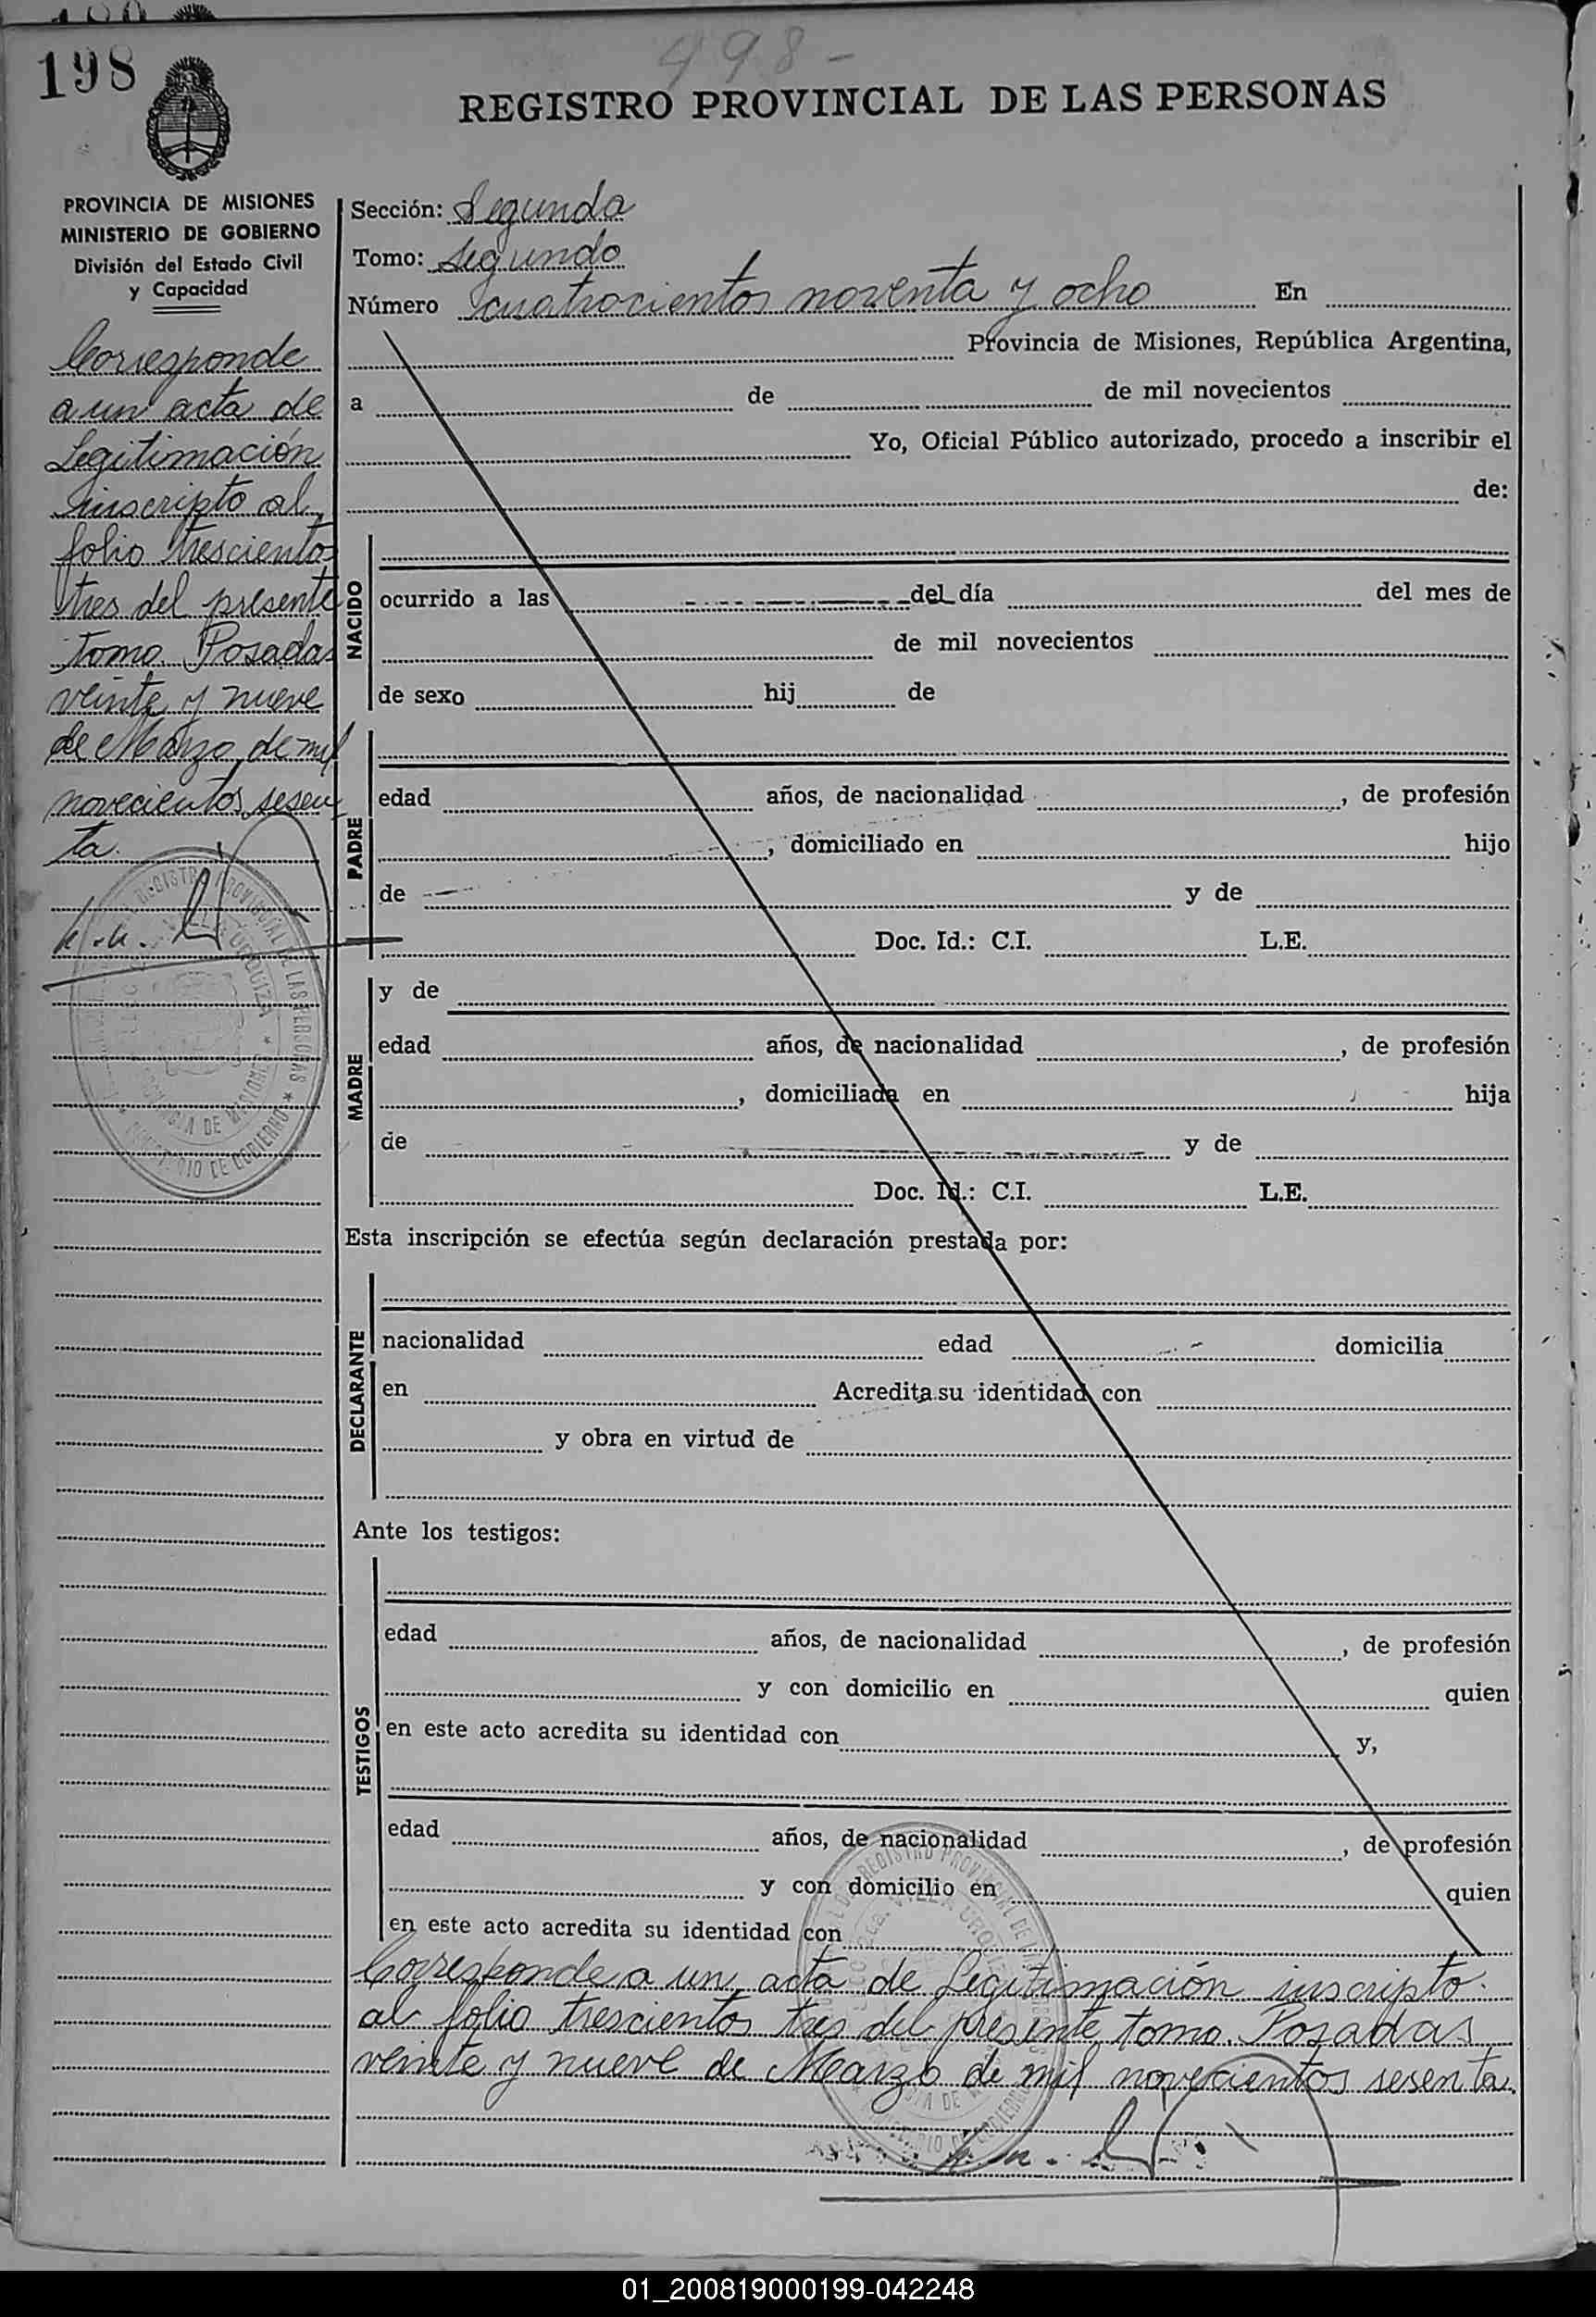 198
498-
REGISTRO PROVINCIAL DE LAS PERSONAS
PROVINCIA DE MISIONES
MINISTERIO DE GOBIERNO
División del Estado Civil
y Capacidad
Corresponde
a un acta de
Legitimación
inscripto al
folio trescientos
tres del presente
tomo. Posadas
veinte y nueve
de Marzo de mil
novecientos sesen
ta.
REGISTRO PROVINCIAL DE LAS PERSONAS
VILLA URQUIZA
PROVINCIA DE MISIONES
MINISTERIO DE GOBIERNO
Sección: Segunda
Tomo: Segundo
Número cuatrocientos noventa y ocho En
Provincia de Misiones, República Argentina,
a de de mil novecientos
Yo, Oficial Público autorizado, procedo a inscribir el
de:
NACIDO
ocurrido a las del día del mes de
de mil novecientos
de sexo hij de
PADRE
edad años, de nacionalidad , de profesión
, domiciliado en hijo
de y de
Doc. Id.: C.I. L.E.
MADRE
y de
edad años, de nacionalidad , de profesión
, domiciliada en hija
de y de
Doc. Id.: C.I. L.E.
Esta inscripción se efectúa según declaración prestada por:
DECLARANTE
nacionalidad edad domicilia
en Acredita su identidad con
y obra en virtud de
Ante los testigos:
TESTIGOS
edad años, de nacionalidad , de profesión
y con domicilio en quien
en este acto acredita su identidad con y,
edad años, de nacionalidad , de profesión
y con domicilio en quien
en este acto acredita su identidad con
Corresponde a un acta de Legitimación inscripto
al folio trescientos tres del presente tomo. Posadas
veinte y nueve de Marzo de mil novecientos sesenta.
01_200819000199-042248